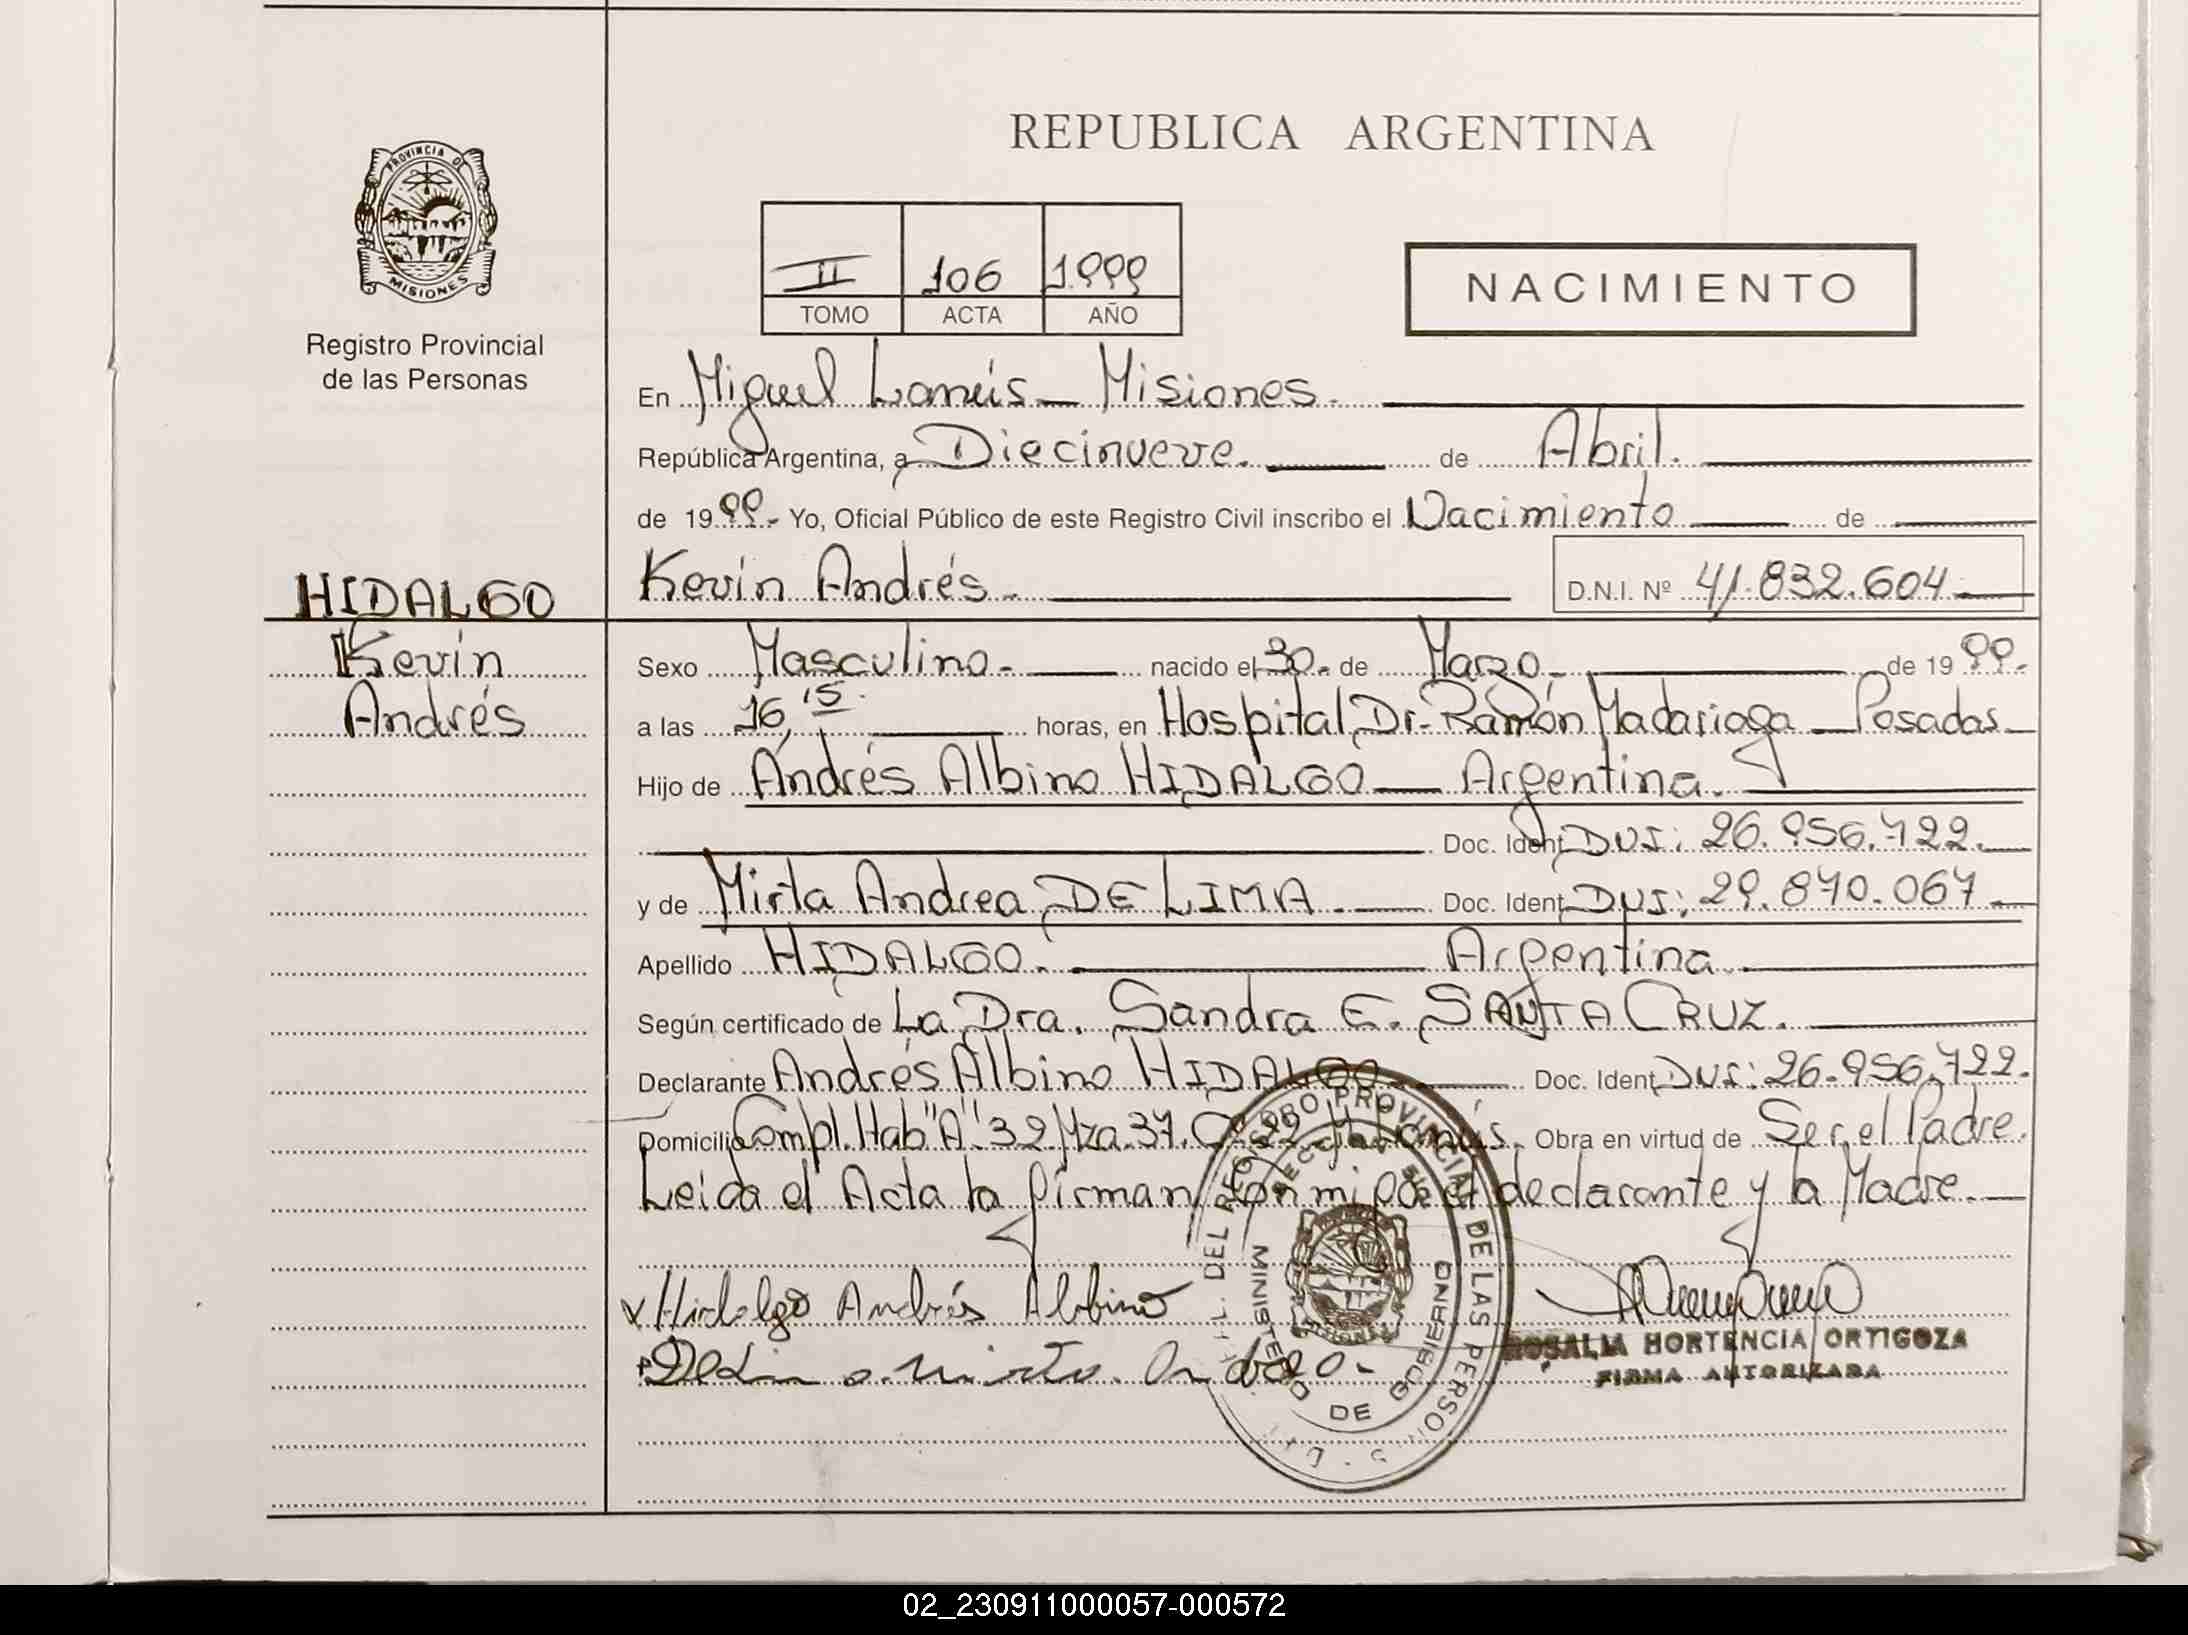 REPUBLICA ARGENTINA
PROVINCIA DE
MISIONES
Registro Provincial
de las Personas
II 106 1.999
TOMO ACTA AÑO
NACIMIENTO
En Miguel Lanús — Misiones.
República Argentina, a Diecinueve. de Abril.
de 1999.- Yo, Oficial Público de este Registro Civil inscribo el Nacimiento de
HIDALGO
Kevin Andrés
Kevin Andrés.- D.N.I. Nº 41.832.604.-
Sexo Masculino.- nacido el 30.- de Marzo.- de 1999.-
a las 16,15 horas, en Hospital Dr. Ramón Madariaga — Posadas
Hijo de Andrés Albino HIDALGO — Argentina.
Doc. Ident. DNI: 26.956.722.
y de Mirta Andrea DE LIMA.- Doc. Ident. DNI: 29.870.067
Apellido HIDALGO. Argentina.
Según certificado de La Dra. Sandra E. SANTA CRUZ.
Declarante Andrés Albino HIDALGO Doc. Ident. DNI: 26.956.722.
Domicilio Compl. Hab "A" 32 Mza. 37. C. 22 Lanús. Obra en virtud de Ser el Padre.
Leida el Acta la firman con mi por el declarante y la Madre.
Hidalgo Andrés Albino
De Lima Mirta Andrea.
DEL REGISTRO PROVINCIAL DE LAS PERSONAS
MINISTERIO DE GOBIERNO
MISIONES
ROSALIA HORTENCIA ORTIGOZA
FIRMA AUTORIZADA
02_230911000057-000572